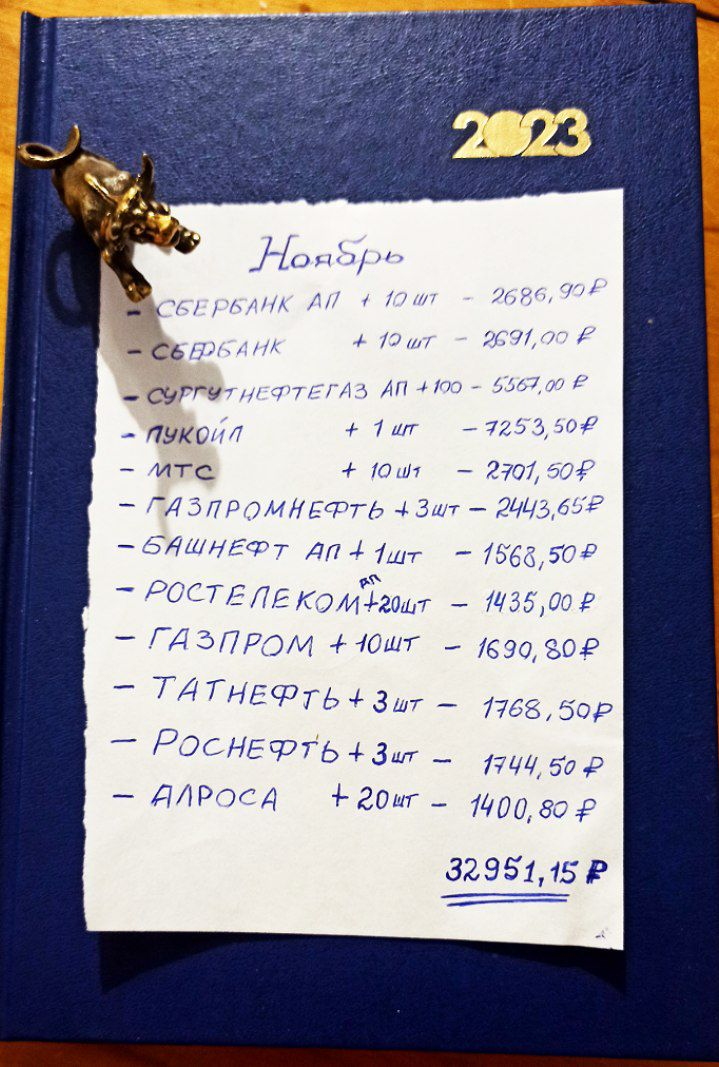 2023
Ноябрь
- СБЕРБАНК АП + 10 шт - 2686,90₽
- СБЕРБАНК + 10 шт - 2691,00 ₽
- СУРГУТНЕФТЕГАЗ АП +100 - 5567,00 ₽
- ЛУКОЙЛ + 1 шт - 7253,50₽
- МТС + 10 шт - 2701,50₽
- ГАЗПРОМНЕФТЬ + 3шт - 2443,65₽
- БАШНЕФТ АП + 1шт - 1568,50₽
- РОСТЕЛЕКОМ АП +20шт - 1435,00 ₽
- ГАЗПРОМ + 10шт - 1690,80₽
- ТАТНЕФТЬ + 3 шт - 1768,50₽
- РОСНЕФТЬ + 3шт - 1744,50 ₽
- АЛРОСА + 20шт - 1400,80 ₽
32951,15 ₽